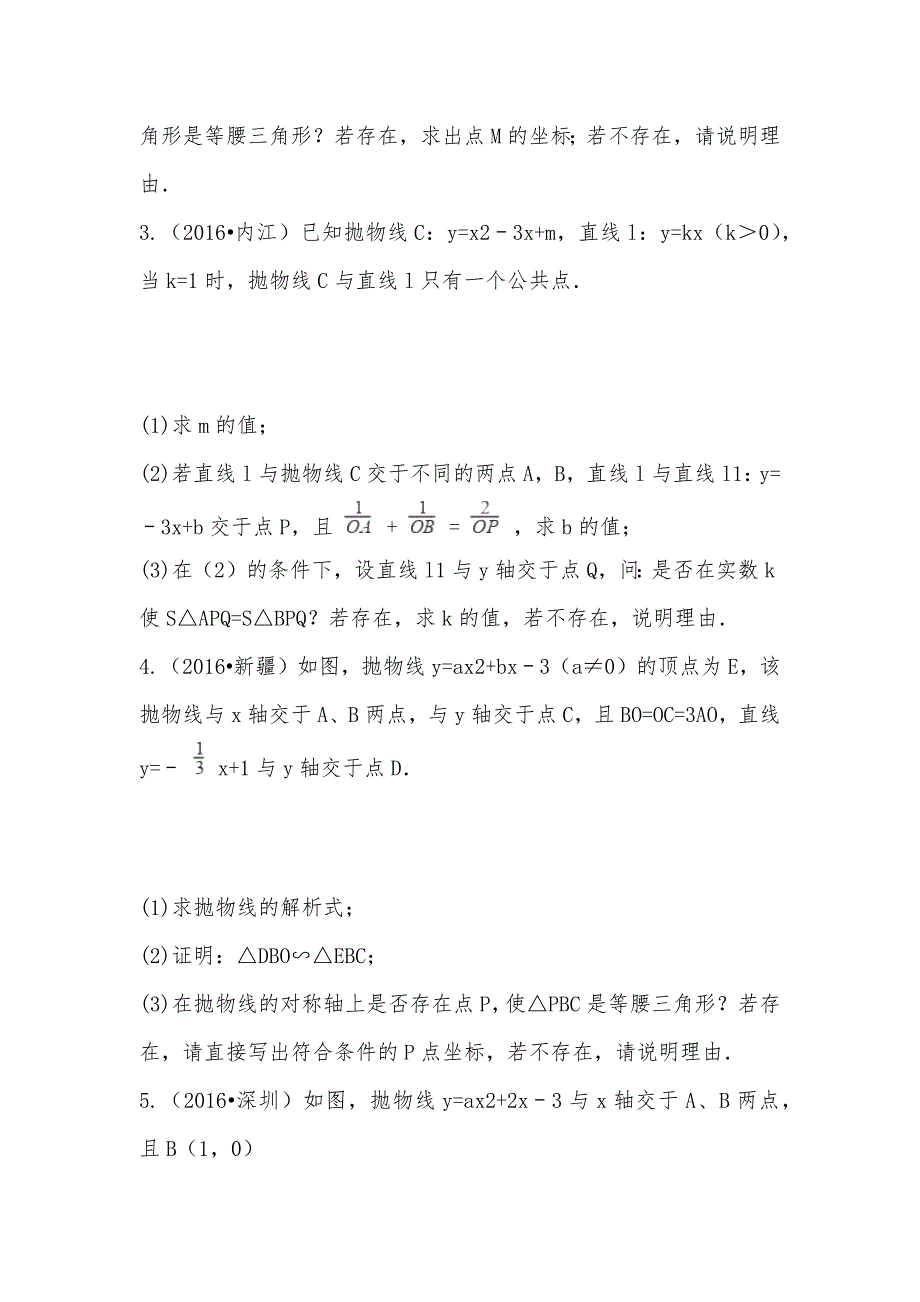 角形是等腰三角形？若存在，求出点M的坐标；若不存在，请说明理
由．
3.（2016•内江）已知抛物线C：y=x2﹣3x+m，直线l：y=kx（k＞0），
当k=1时，抛物线C与直线l只有一个公共点．
(1)求m的值；
(2)若直线l与抛物线C交于不同的两点A，B，直线l与直线l1：y=
﹣3x+b交于点P，且 1/OA + 1/OB = 2/OP ，求b的值；
(3)在（2）的条件下，设直线l1与y轴交于点Q，问：是否在实数k
使S△APQ=S△BPQ？若存在，求k的值，若不存在，说明理由．
4.（2016•新疆）如图，抛物线y=ax2+bx﹣3（a≠0）的顶点为E，该
抛物线与x轴交于A、B两点，与y轴交于点C，且BO=OC=3AO，直线
y=﹣ 1/3 x+1与y轴交于点D．
(1)求抛物线的解析式；
(2)证明：△DBO∽△EBC；
(3)在抛物线的对称轴上是否存在点P，使△PBC是等腰三角形？若存
在，请直接写出符合条件的P点坐标，若不存在，请说明理由．
5.（2016•深圳）如图，抛物线y=ax2+2x﹣3与x轴交于A、B两点，
且B（1，0）